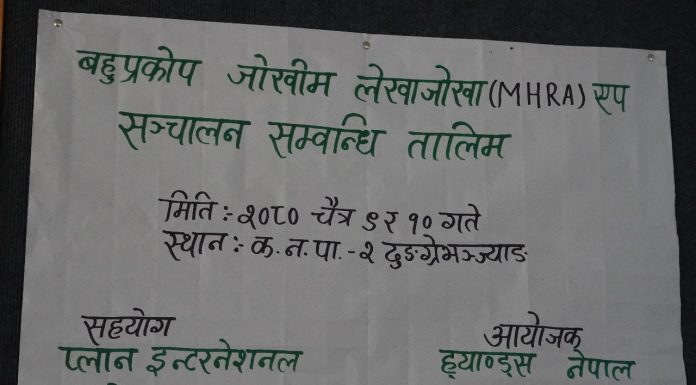 बहुप्रकोप जोखीम लेखाजोखा (MHRA) एप
सञ्चालन सम्वन्धि तालिम
मितिः- २०८० चैत्र ९ र १० गते
स्थानः- क.न.पा.-२ दुङग्रेभञ्ज्याङ
सहयोग
आयोजक
प्लान इन्टरनेशनल
ह्याण्ड्स नेपाल